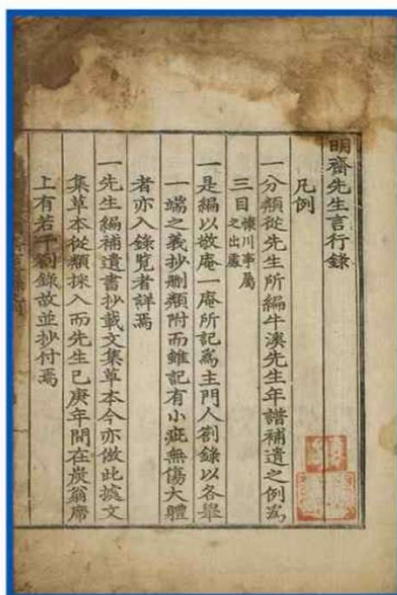 明齋先生言行錄
凡例
一分類從先生所編牛溪先生年譜補遺之例爲
三目懷川事屬之出處
一是編以敬庵一庵所記爲主門人劄錄以各舉
一端之義抄刪類附而雖記有小疵無傷大體
者亦入錄覽者詳焉
一先生編補遺書抄載文集草本今亦倣此據文
集草本從類採入而先生己庚年間在炭翁席
上有若干劄錄故並抄付焉